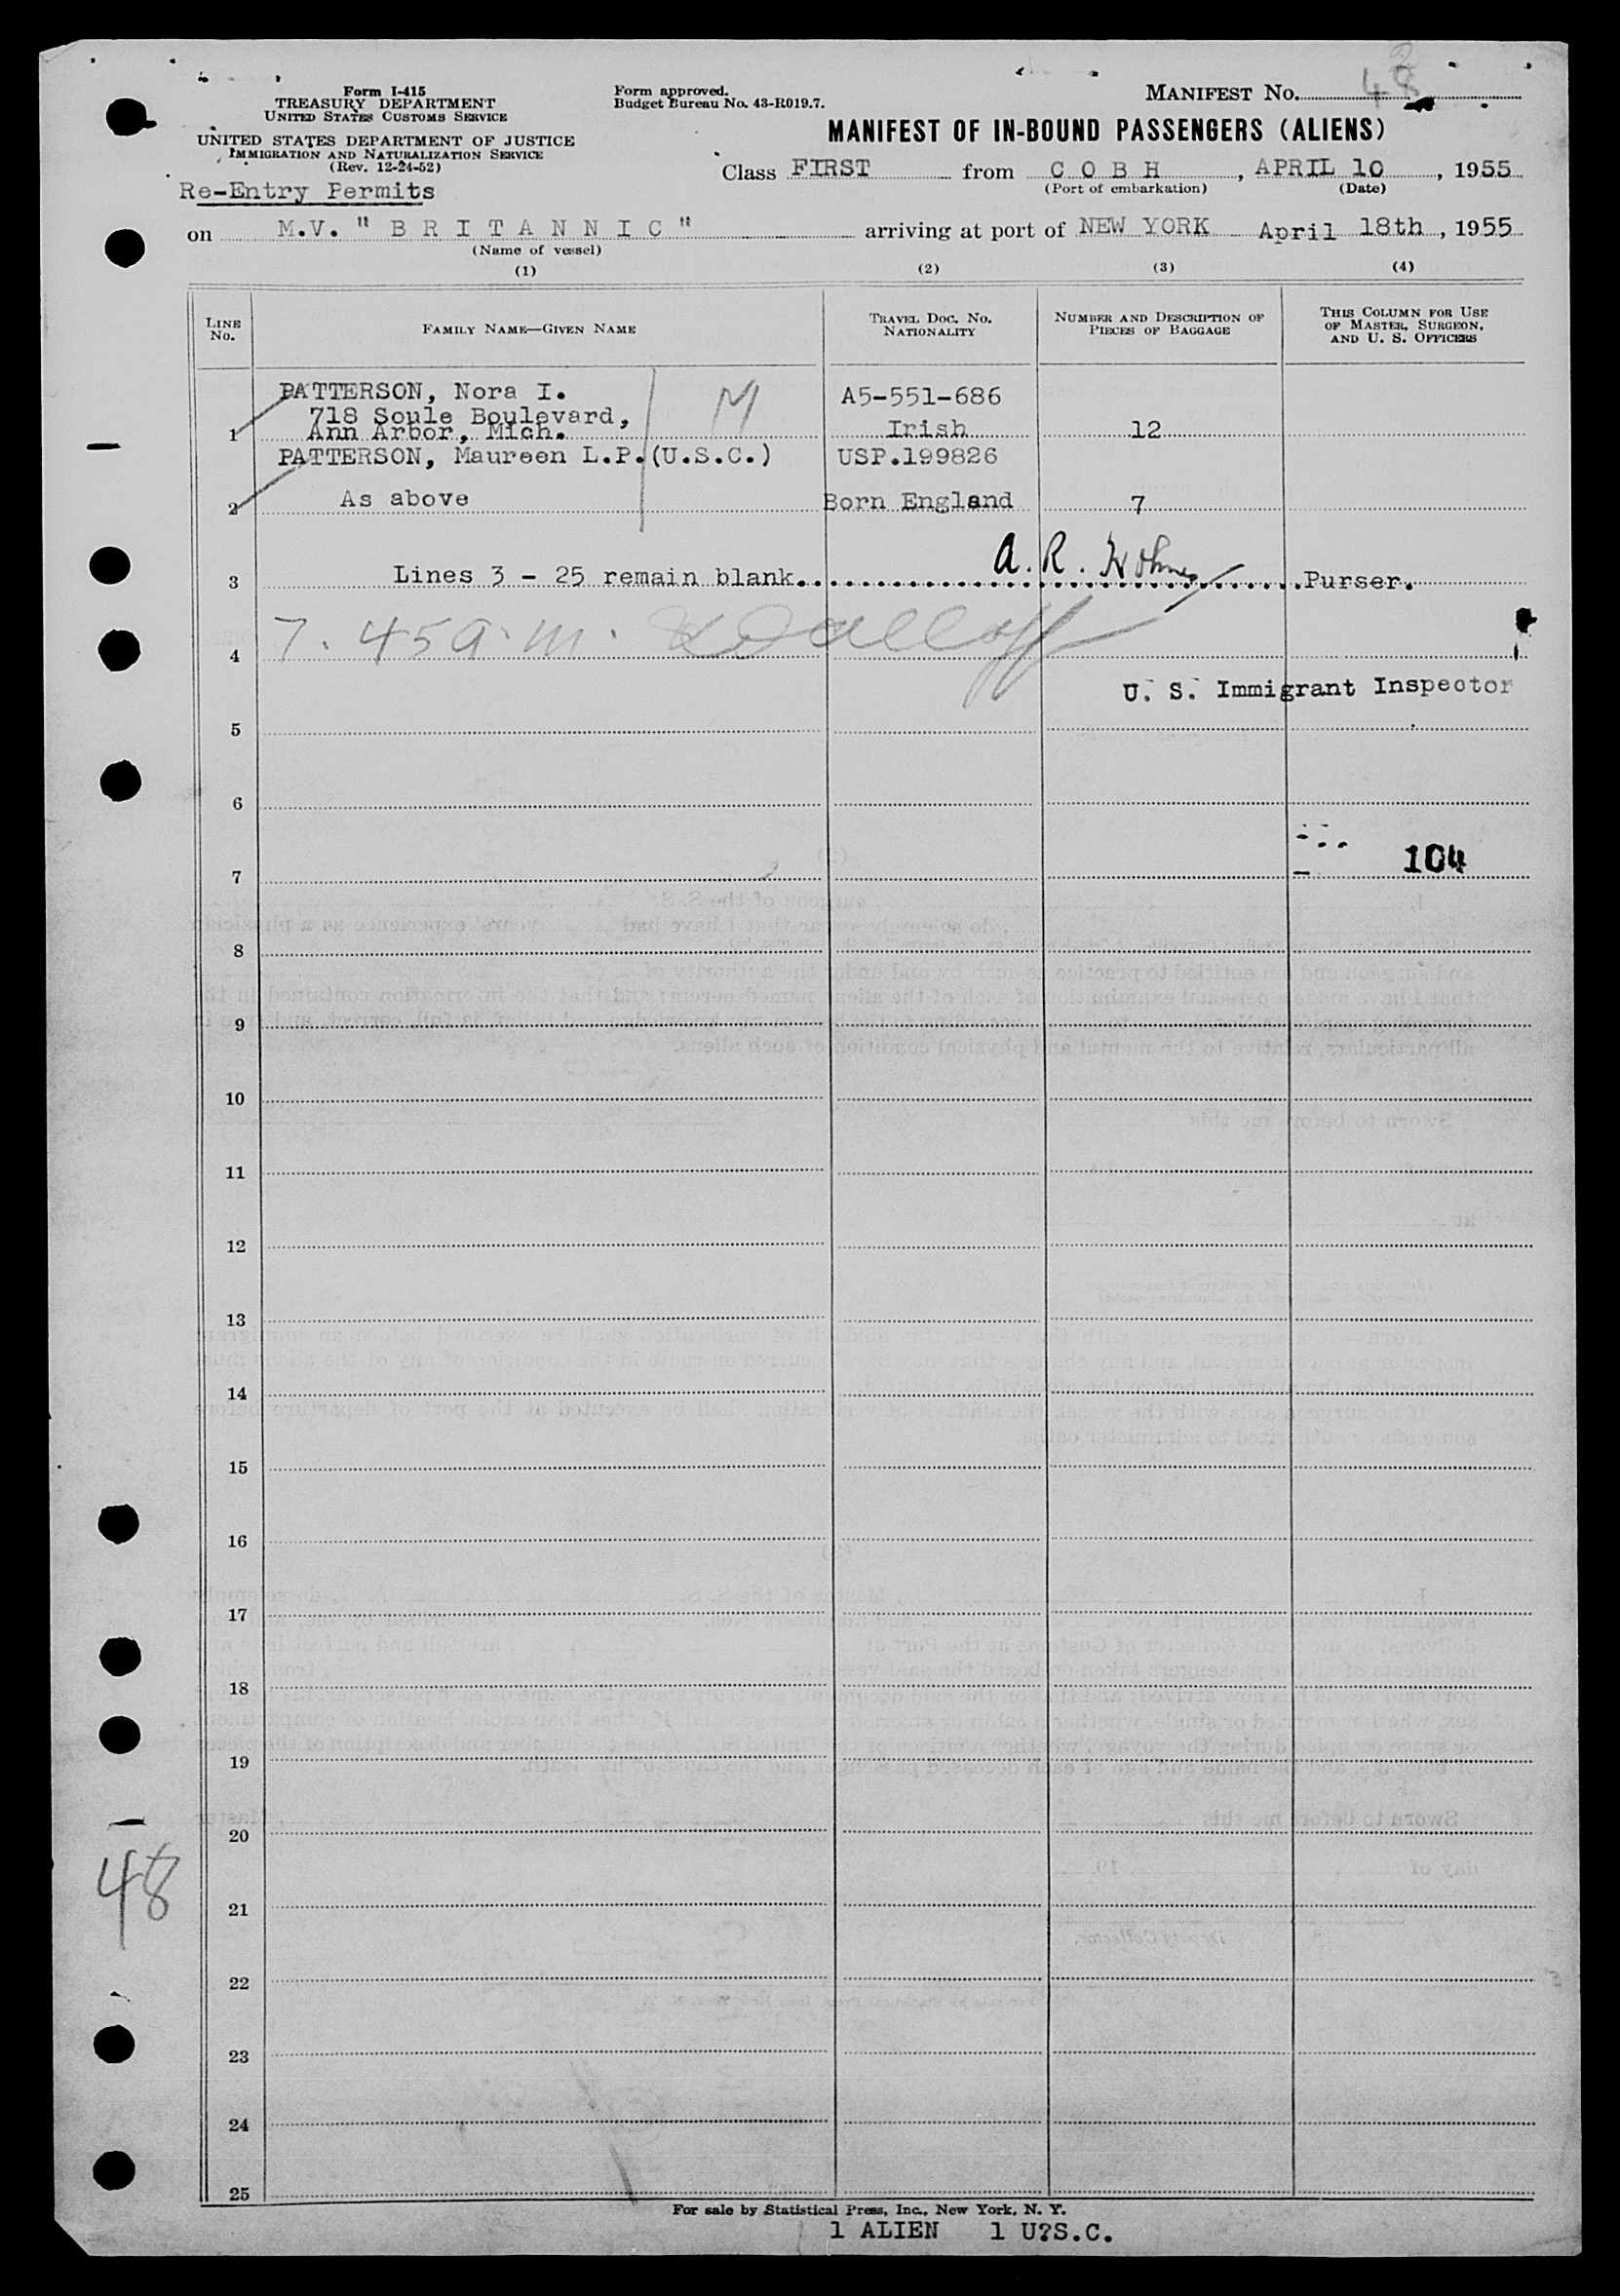 Form I-415
TREASURY DEPARTMENT
UNITED STATES CUSTOMS SERVICE
UNITED STATES DEPARTMENT OF JUSTICE
IMMIGRATION AND NATURALIZATION SERVICE
(Rev. 12-24-52)
Re-Entry Permits
Form approved.
Budget Bureau No. 43-R019.7.
MANIFEST No. 48
MANIFEST OF IN-BOUND PASSENGERS (ALIENS)
Class FIRST from C O B H, APRIL 10, 1955
(Port of embarkation) (Date)
on M.V. " B R I T A N N I C " arriving at port of NEW YORK April 18th, 1955
(Name of vessel)
(1) (2) (3) (4)
LINE No. FAMILY NAME—GIVEN NAME TRAVEL DOC. No. NATIONALITY NUMBER AND DESCRIPTION OF PIECES OF BAGGAGE THIS COLUMN FOR USE OF MASTER, SURGEON, AND U. S. OFFICERS
PATTERSON, Nora I. M A5-551-686
718 Soule Boulevard,
1 Ann Arbor, Mich. Irish 12
PATTERSON, Maureen L.P. (U.S.C.) USP.199826
2 As above Born England 7
3 Lines 3 - 25 remain blank. A. R. Purser.
4 7.45 a.m.
U. S. Immigrant Inspector
5
6
7 104
8
9
10
11
12
13
14
15
16
17
18
19
20
48
21
22
23
24
25
For sale by Statistical Press, Inc., New York, N. Y.
1 ALIEN 1 U?S.C.